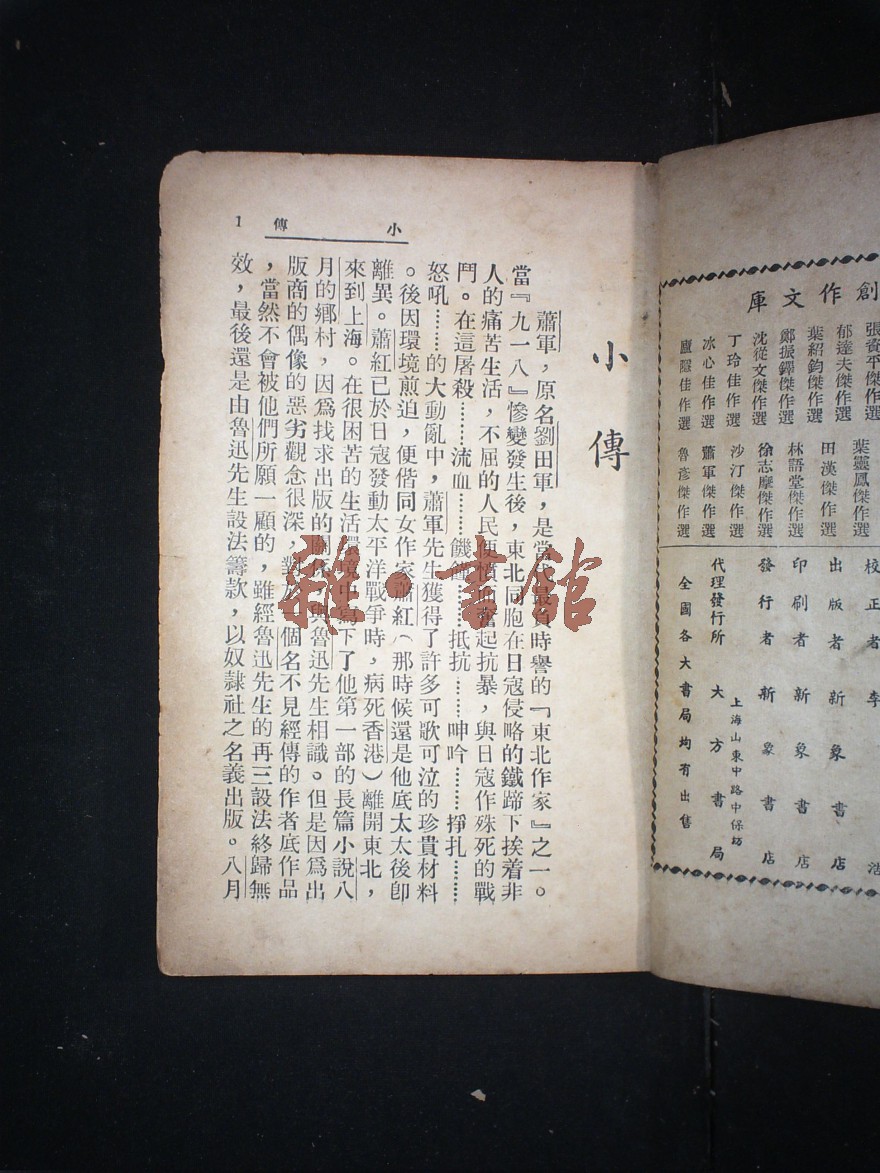 創作文庫
張資平傑作選
郁達夫傑作選
葉紹鈞傑作選
鄭振鐸傑作選
沈從文傑作選
丁玲佳作選
冰心佳作選
廬隱佳作選
葉靈鳳傑作選
田漢傑作選
林語堂傑作選
徐志摩傑作選
沙汀傑作選
蕭軍傑作選
魯彥傑作選
校正者 李 浩
出版者 新象書店
印刷者 新象書店
發行者 新象書店
上海山東中路中保坊
代理發行所 大方書局
全國各大書局均有出售
小傳 1
小傳
蕭軍，原名劉田軍，是當代最負時譽的『東北作家』之一。
當『九一八』慘變發生後，東北同胞在日寇侵略的鐵蹄下挨着非
人的痛苦生活，不屈的人民便憤奮起抗暴，與日寇作殊死的戰
鬥。在這屠殺………流血………饑餓………抵抗………呻吟………掙扎………
怒吼………的大動亂中，蕭軍先生獲得了許多可歌可泣的珍貴材料
。後因環境煎迫，便偕同女作家蕭紅（那時候還是他底太太後卽
離異。蕭紅已於日寇發動太平洋戰爭時，病死香港）離開東北，
來到上海。在很困苦的生活環境中寫下了他第一部的長篇小說八
月的鄉村，因爲找求出版的關係，與魯迅先生相識。但是因爲出
版商的偶像的惡劣觀念很深，對於一個名不見經傳的作者底作品
，當然不會被他們所願一顧的，雖經魯迅先生的再三設法終歸無
效，最後還是由魯迅先生設法籌款，以奴隸社之名義出版。八月
雜·書館